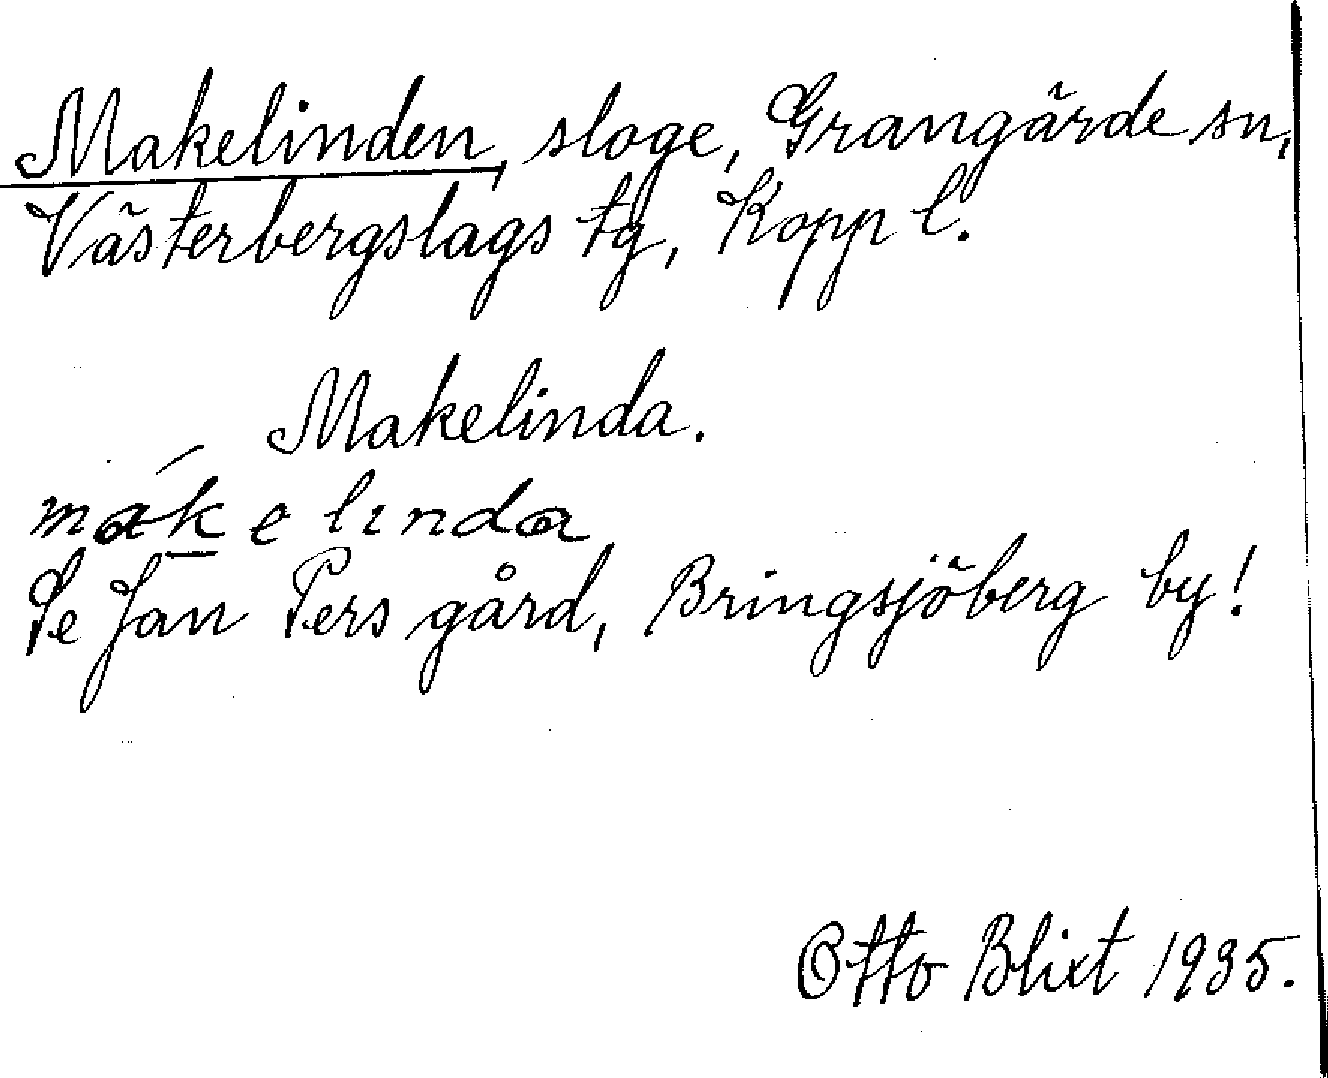 Makelinden, sloge, Grangärde sn,
Västerbergslags tg, Kopp l.
Makelinda.
mak e linda
Se Jan Pers gård, Bringsjöberg by!
Otto Blixt 1935.